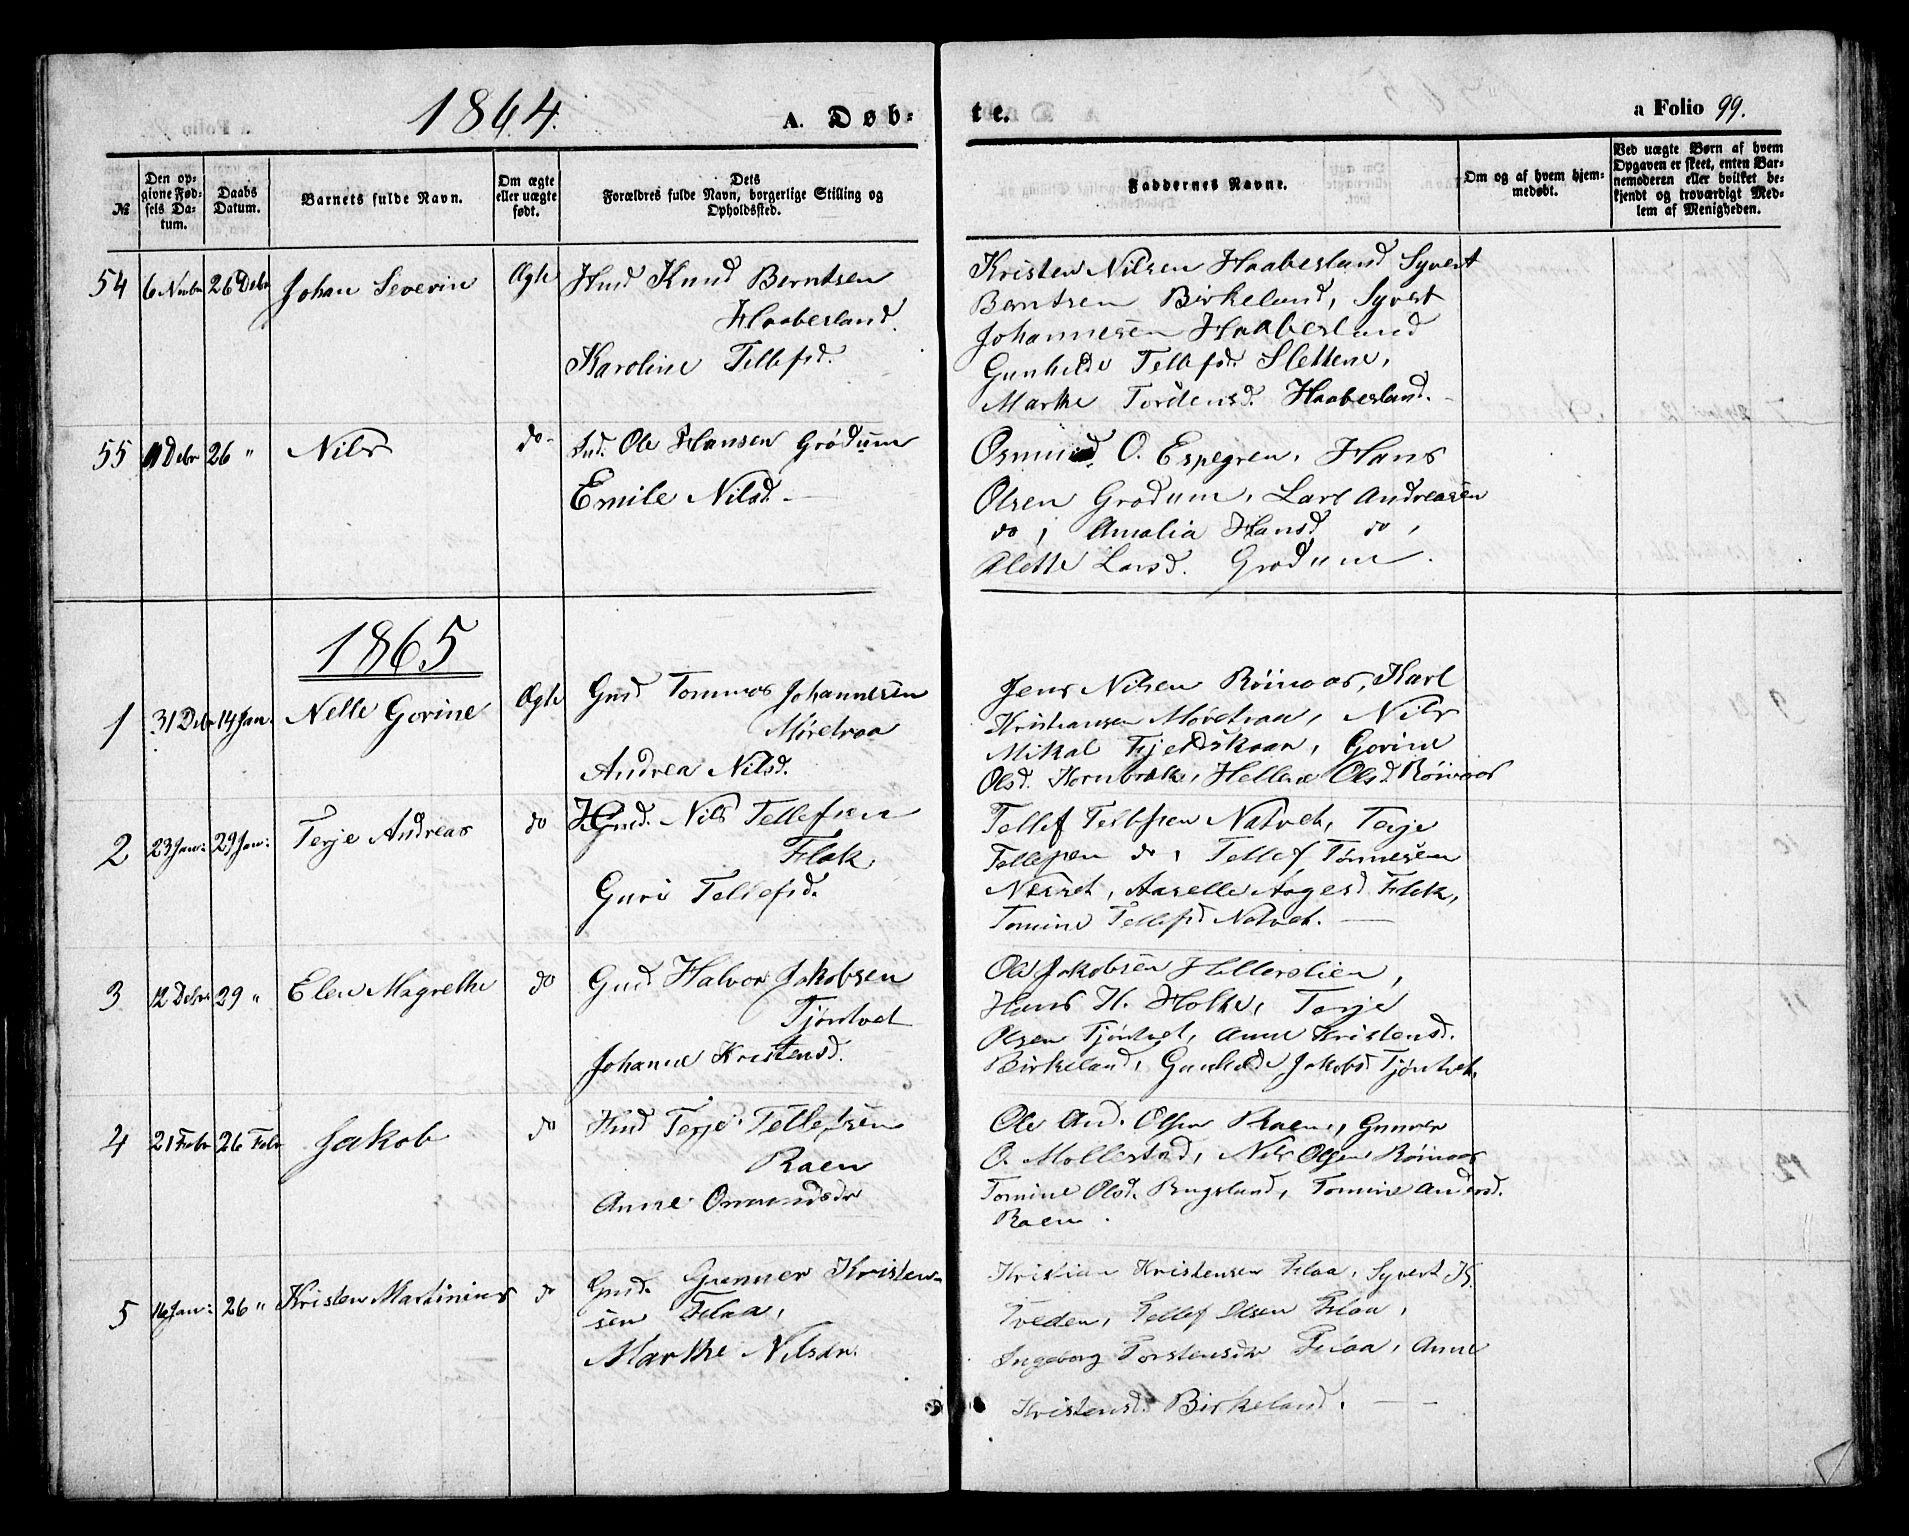 1864. A. Døb-
te. a Folio 99.
№ Den opgivne Fødsels Datum. Daabs Datum. Barnets fulde Navn. Om ægte eller uægte født. Dets Forældres fulde Navn, borgerlige Stilling og Opholdssted.
Faddernes Navne. Om og af hvem hjemmedøbt. Ved uægte Børn af hvem Opgaven er skeet, enten Barnemoderen eller hvilket bekjendt og troværdigt Medlem af Menigheden.
54 6 Novbr 26 Debr Johan Severin Ægte Hmd Knud Berntsen
Haabesland.
Karoline Tellefsd.
Kristen Nilsen Haabesland Syvert
Berntsen Birkeland, Syvert
Johannesen Haabesland
Gunhilde Tellefsd. Slettene,
Marthe Tordensd. Haabesland.
55 11 Debr 26 " Nils do Ind. Ole Hansen Grødum
Emile Nilsd.
Osmund O. Espegren, Hans
Olsen Grødum, Lars Andreasen
do, Amalia Hansd. do,
Alette Larsd. Grødum.
1865
1 31 Debr 14 Jan. Nelle Gorine Ægte Gmd Tommas Johannesen
Møretraa
Andrea Nilsd.
Jens Nilsen Röinaas, Karl
Kristiansen Møretraa, Nils
Mikal Fjeldskaar, Gorine
Olsd. Hornbrække, Hellene Olsd. Röinaas
2 23 Jan: 29 Jan: Terje Andreas do Gmd. Nils Tellefsen
Flak.
Guri Tellefsd.
Tellef Tellefsen Natvet, Terje
Tellefsen do, Tellef Tønnesen
Nesset, Aaselle Aagesd Flak,
Tomine Tellefsd Natvet.
3 12 Debr 29 " Elen Magrethe do Gmd Halvor Jakobsen
Tjöntvet
Johanne Kristensd.
Ole Jakobsen Hellerslien,
Hans H. Holte, Terje
Olsen Tjöntvet, Anne Kristensd.
Birkeland, Gunhilde Jakobsd Tjöntvet.
4 21 Febr 26 Febr Jakob do Hmd Terje Tellefsen
Raen
Anne Osmundsdr
Ole And. Olsen Raen, Gunner
O. Mollestad, Nils Olsen Röinaas
Tomine Olsd. Bugsland, Tomine Andersd.
Raen.
5 16 Jan: 26 " Kristen Martinius do Gmd. Gunner Kristen-
sen Flaa,
Marthe Nilsdr.
Kristian Kristensen Flaa, Syvert K.
Tveden, Tellef Olsen Flaa,
Ingeborg Torstensdr Flaa, Anne
Kristensd. Birkeland.